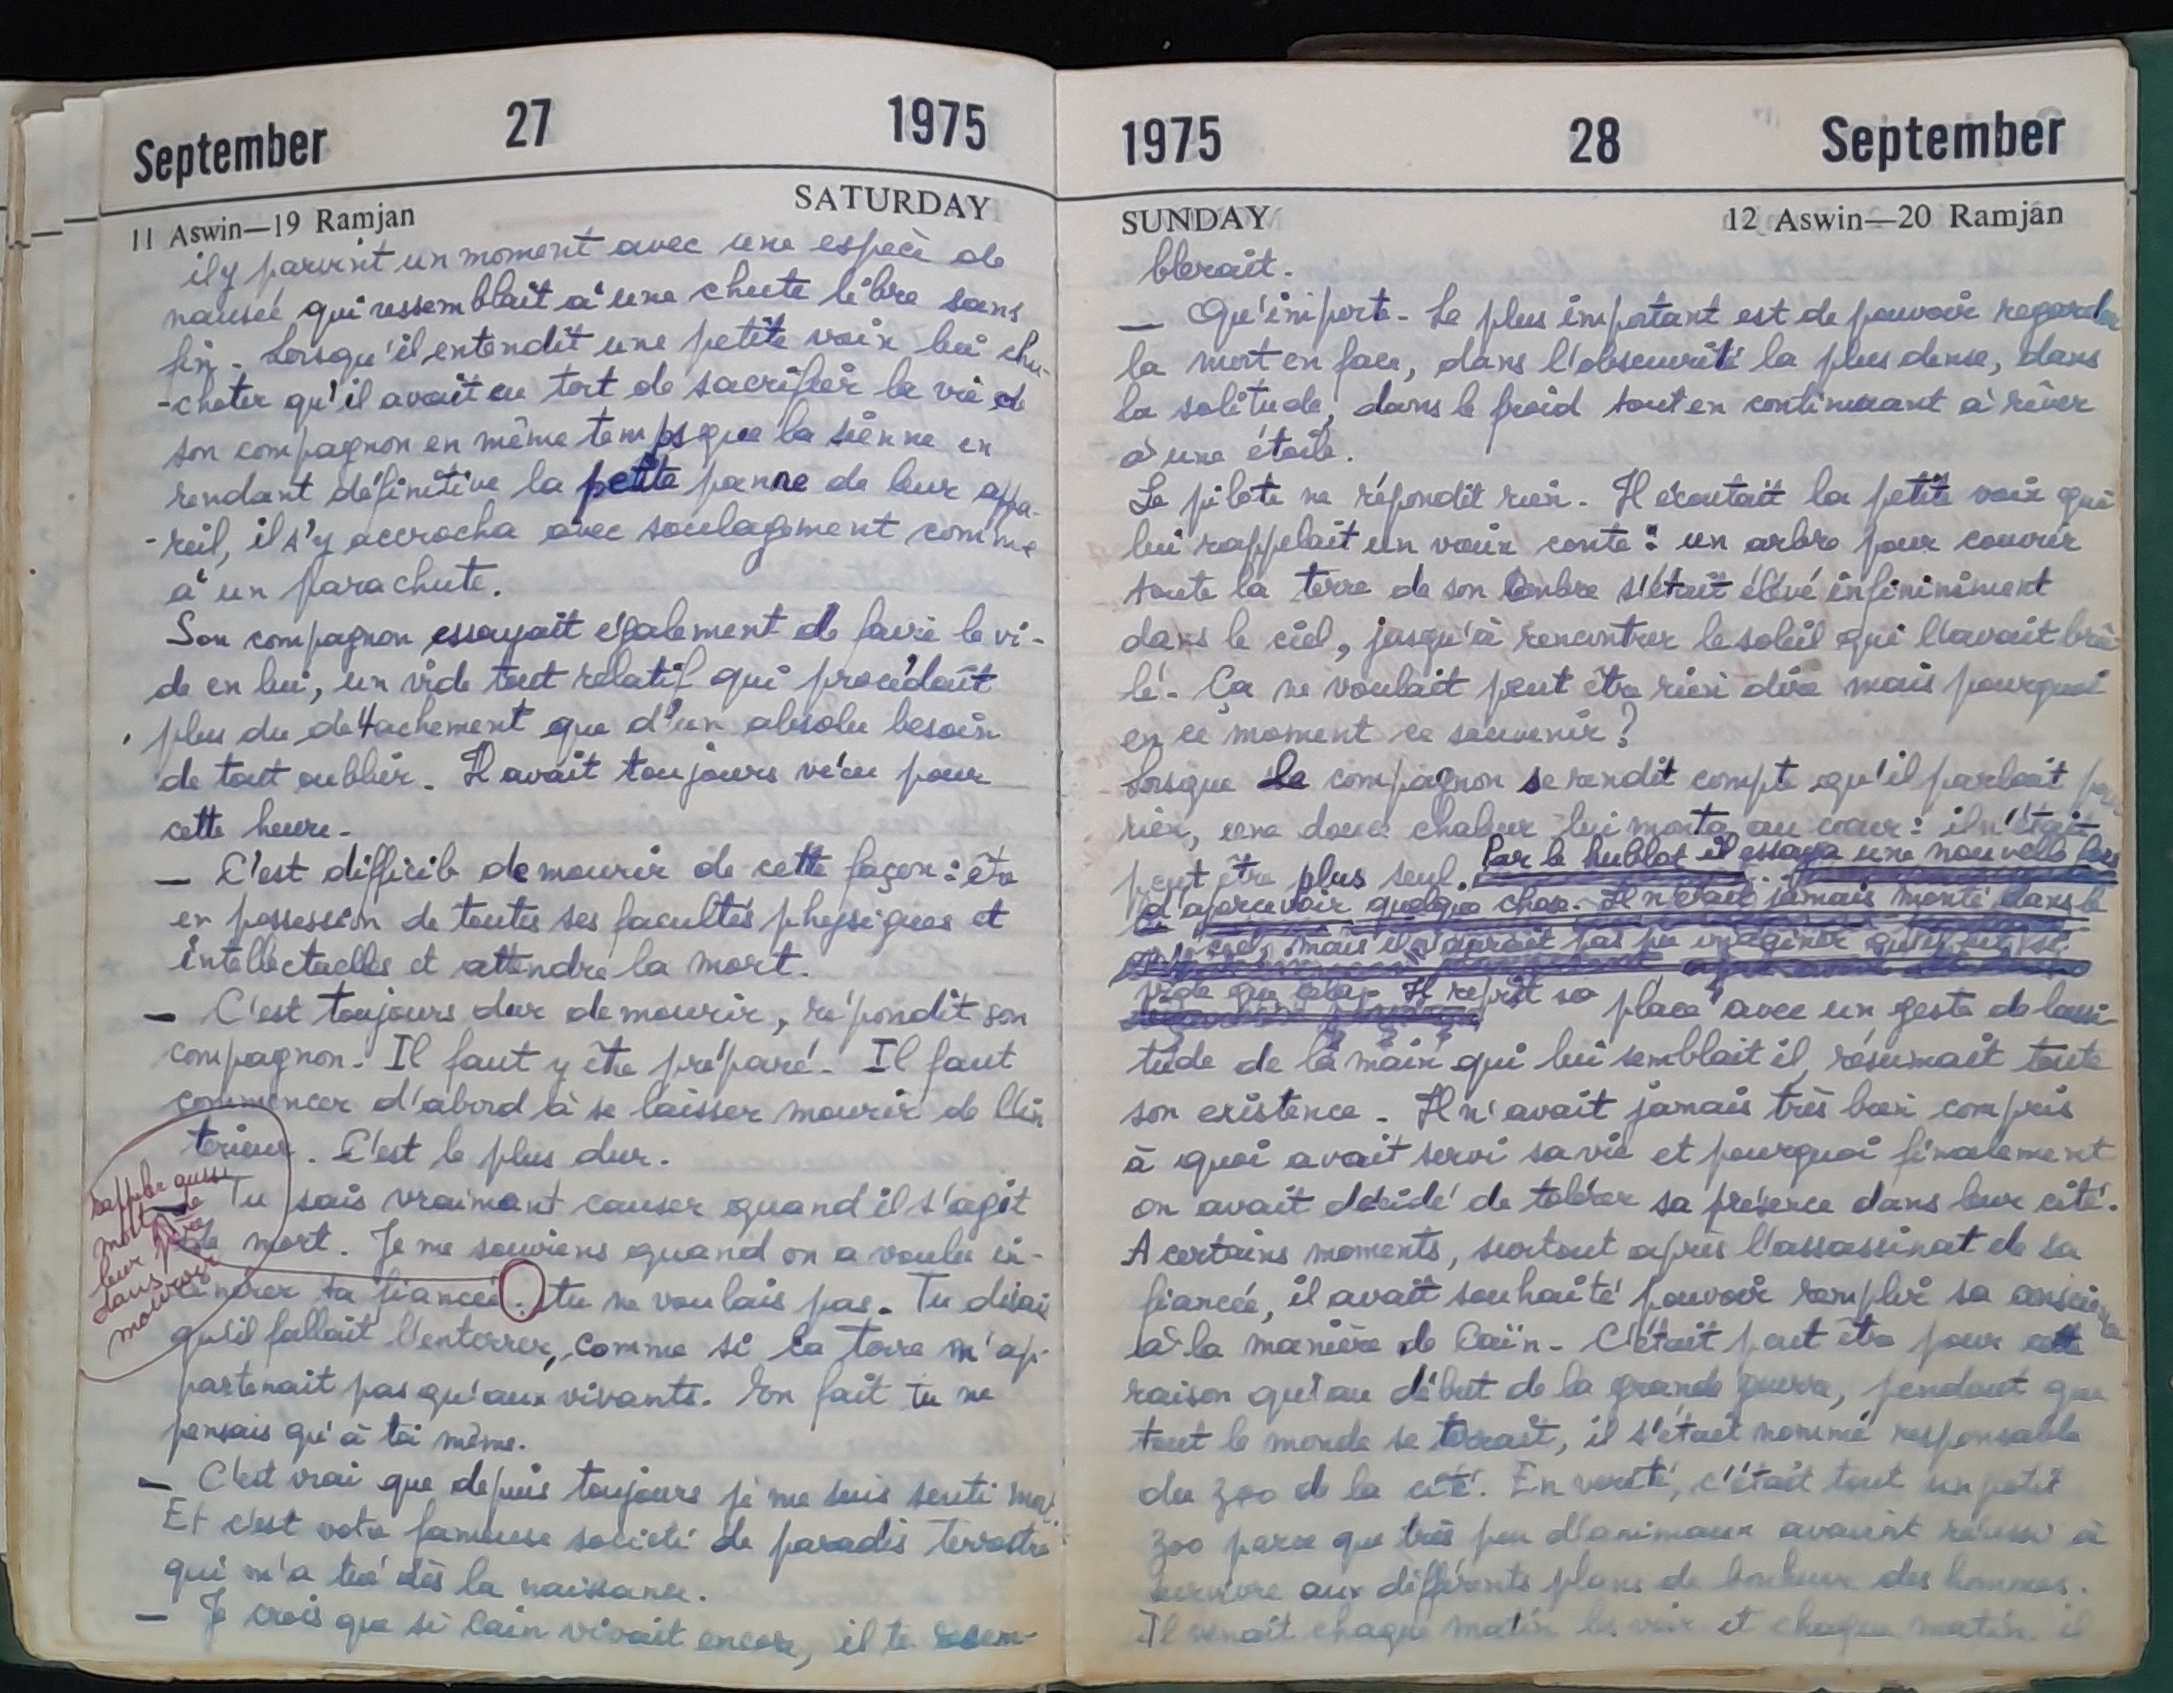 September 27 1975
11 Aswin—19 Ramjan SATURDAY
il y parvint un moment avec une espèce de
nausée qui ressemblait à une chute libre sans
fin. Lorsqu'il entendit une petite voix lui chu-
-choter qu'il avait eu tort de sacrifier la vie de
son compagnon en même temps que la sienne en
rendant définitive la petite panne de leur appa-
-reil, il s'y accrocha avec soulagement comme
à un parachute.
Son compagnon essayait également de faire le vi-
de en lui, un vide tout relatif qui procédait
plus du détachement que d'un absolu besoin
de tout oublier. Il avait toujours vécu pour
cette heure.
— C'est difficile de mourir de cette façon : être
en possession de toutes ses facultés physiques et
intellectuelles et attendre la mort.
— C'est toujours dur de mourir, répondit son
compagnon. Il faut y être préparé. Il faut
commencer d'abord à se laisser mourir de l'in
térieur. C'est le plus dur.
— Tu sais vraiment causer quand il s'agit
de mort. Je me souviens quand on a voulu in-
cinérer ta fiancée. tu ne voulais pas. Tu disais
qu'il fallait l'enterrer, comme si la terre n'ap-
partenait pas qu'aux vivants. En fait tu ne
pensais qu'à toi même.
— C'est vrai que depuis toujours je me suis senti mort.
Et c'est votre fameuse société de paradis terrestre
qui m'a tué dès la naissance.
— Je crois que si Caïn vivait encore, il te ressem-
rappeler aussi
mort de
leur père
dans
mouroir
1975 28 September
SUNDAY 12 Aswin—20 Ramjan
blerait.
— Qu'importe. Le plus important est de pouvoir regarder
la mort en face, dans l'obscurité la plus dense, dans
la solitude, dans le froid tout en continuant à rêver
à une étoile.
Le pilote ne répondit rien. Il écoutait la petite voix qui
lui rappelait un vieux conte : un arbre pour couvrir
toute la terre de son ombre s'était élevé infiniment
dans le ciel, jusqu'à rencontrer le soleil qui l'avait brû-
lé. Ça ne voulait peut être rien dire mais pourquoi
en ce moment ce souvenir ?
Lorsque le compagnon se rendit compte qu'il parlait pour
rien, une douce chaleur lui monta au cœur : il n'était
peut être plus seul. Par le hublot il essaya une nouvelle fois
d'apercevoir quelque chose. Il n'était jamais monté dans le
ciel, mais il n'aurait pas pu imaginer qu'il fut si
vide que cela. Il reprit sa place avec un geste de lassi-
tude de la main qui lui semblait il, résumait toute
son existence. Il n'avait jamais très bien compris
à quoi avait servi sa vie et pourquoi finalement
on avait décidé de tolérer sa présence dans leur cité.
A certains moments, surtout après l'assassinat de sa
fiancée, il avait souhaité pouvoir remplir sa conscience
à la manière de Caïn. C'était peut être pour cette
raison qu'au début de la grande guerre, pendant que
tout le monde se terrait, il s'était nommé responsable
du zoo de la cité. En vérité, c'était tout un petit
zoo parce que très peu d'animaux avaient réussi à
survivre aux différents plans de bonheur des hommes.
Il venait chaque matin les voir et chaque matin il